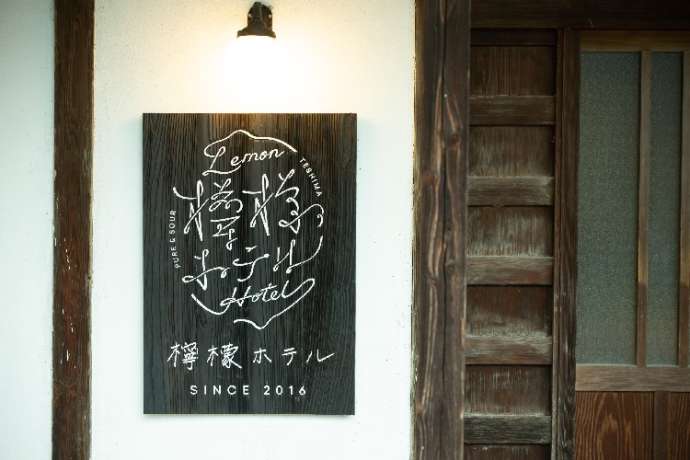 Lemon
TESHIMA
PURE & SOUR
檸檬
ホテル
Hotel
檸檬ホテル
SINCE 2016